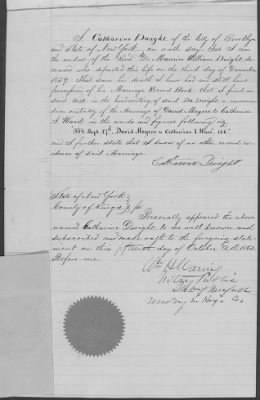 I Catharine Dwight, of the City of Brooklyn
and State of New York, on oath say, that I am
the widow of the Revd. Dr Maurice William Dwight, de-
ceased who departed this life on the third day of December
1859. That since his death I have had and still have
possession of his Marriage Record Book that I find on
said Book in the handwriting of said Dr Dwight a memoran-
dum evidently of the Marriage of David Magee & Catharine
I Ward in the words and figures following viz.
Sept. 17th, David Magee & Catharine I Ward.
and I further state that I know of no other record evi-
dence of said Marriage.
Catharine Dwight
State of New York
County of Kings ss
Personally appeared the above
named Catharine Dwight, to me well known and
subscribed and made oath to the foregoing state-
ment on this day of October A.D. 1862.
Before me.
Wm H Waring
Notary Public
State of New York
residing in Kings Co